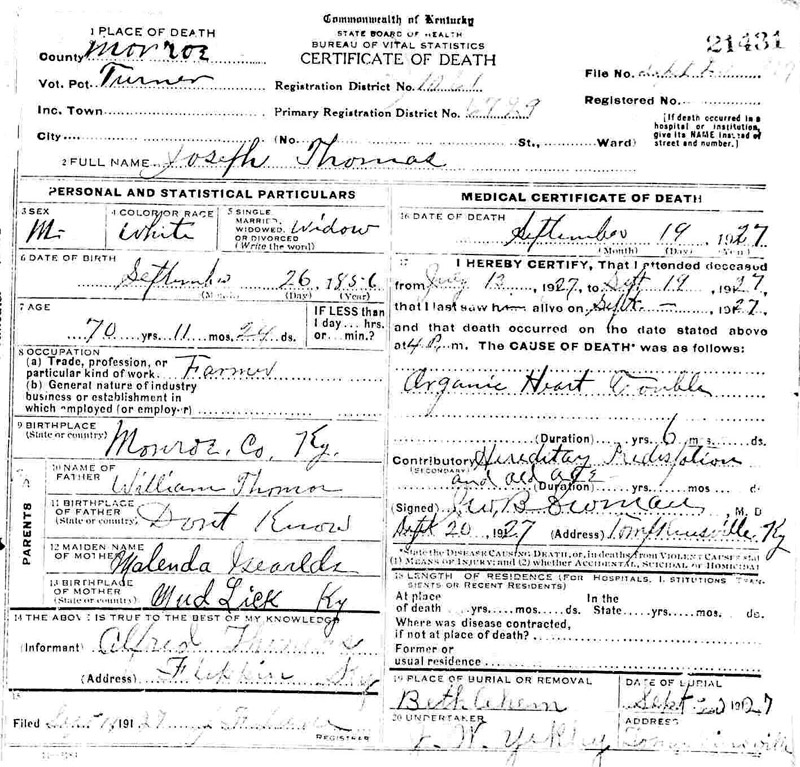 Commonwealth of Kentucky
STATE BOARD OF HEALTH
BUREAU OF VITAL STATISTICS
CERTIFICATE OF DEATH
21431
1 PLACE OF DEATH
County Monroe
Vot. Pct. Turner
Inc. Town
City
Registration District No.
Primary Registration District No. 6729
File No.
Registered No.
[If death occurred in a
hospital or institution,
give its NAME instead of
street and number.]
(No. St., Ward)
2 FULL NAME Joseph Thomas
PERSONAL AND STATISTICAL PARTICULARS
3 SEX
M.
4 COLOR OR RACE
White
5 SINGLE
MARRIED,
WIDOWED
OR DIVORCED
(Write the word)
Widow
6 DATE OF BIRTH
September 26, 1856
(Month) (Day) (Year)
7 AGE
70 yrs. 11 mos. 24 ds.
IF LESS than
1 day... hrs.
or... min.?
8 OCCUPATION
(a) Trade, profession, or
particular kind of work Farmer
(b) General nature of industry
business or establishment in
which employed (or employer)
9 BIRTHPLACE
(State or country) Monroe, Co, Ky.
PARENTS
10 NAME OF
FATHER William Thomas
11 BIRTHPLACE
OF FATHER
(State or country) Dont Know
12 MAIDEN NAME
OF MOTHER Malenda
13 BIRTHPLACE
OF MOTHER
(State or country) Mud Lick Ky
14 THE ABOVE IS TRUE TO THE BEST OF MY KNOWLEDGE
(Informant) Alfred Thomas
(Address) Flippin Ky
15
Filed 1927
REGISTRAR
MEDICAL CERTIFICATE OF DEATH
16 DATE OF DEATH
September 19, 1927.
(Month) (Day) (Year)
17 I HEREBY CERTIFY, That I attended deceased
from July 12, 1927, to Sept 19, 1927,
that I last saw him alive on Sept. -, 1927,
and that death occurred on the date stated above
at 4 P. m. The CAUSE OF DEATH* was as follows:
Organic Heart Trouble
(Duration) yrs. 6 mos. ds.
Contributory Hereditary
(SECONDARY) and old age
(Duration) yrs. mos. ds.
(Signed) , M. D
Sept 20, 1927 (Address) Tompkinsville, Ky
*State the DISEASE CAUSING DEATH, or, in deaths from VIOLENT CAUSES state
(1) MEANS OF INJURY; and (2) whether ACCIDENTAL, SUICIDAL or HOMICIDAL
18 LENGTH OF RESIDENCE (FOR HOSPITALS, INSTITUTIONS TRAN-
SIENTS OR RECENT RESIDENTS)
At place
of death yrs. mos. ds.
In the
State yrs. mos. ds.
Where was disease contracted,
if not at place of death?
Former or
usual residence
19 PLACE OF BURIAL OR REMOVAL
Bethlehem
DATE OF BURIAL
Sept 20 1927
20 UNDERTAKER
ADDRESS
Tompkinsville